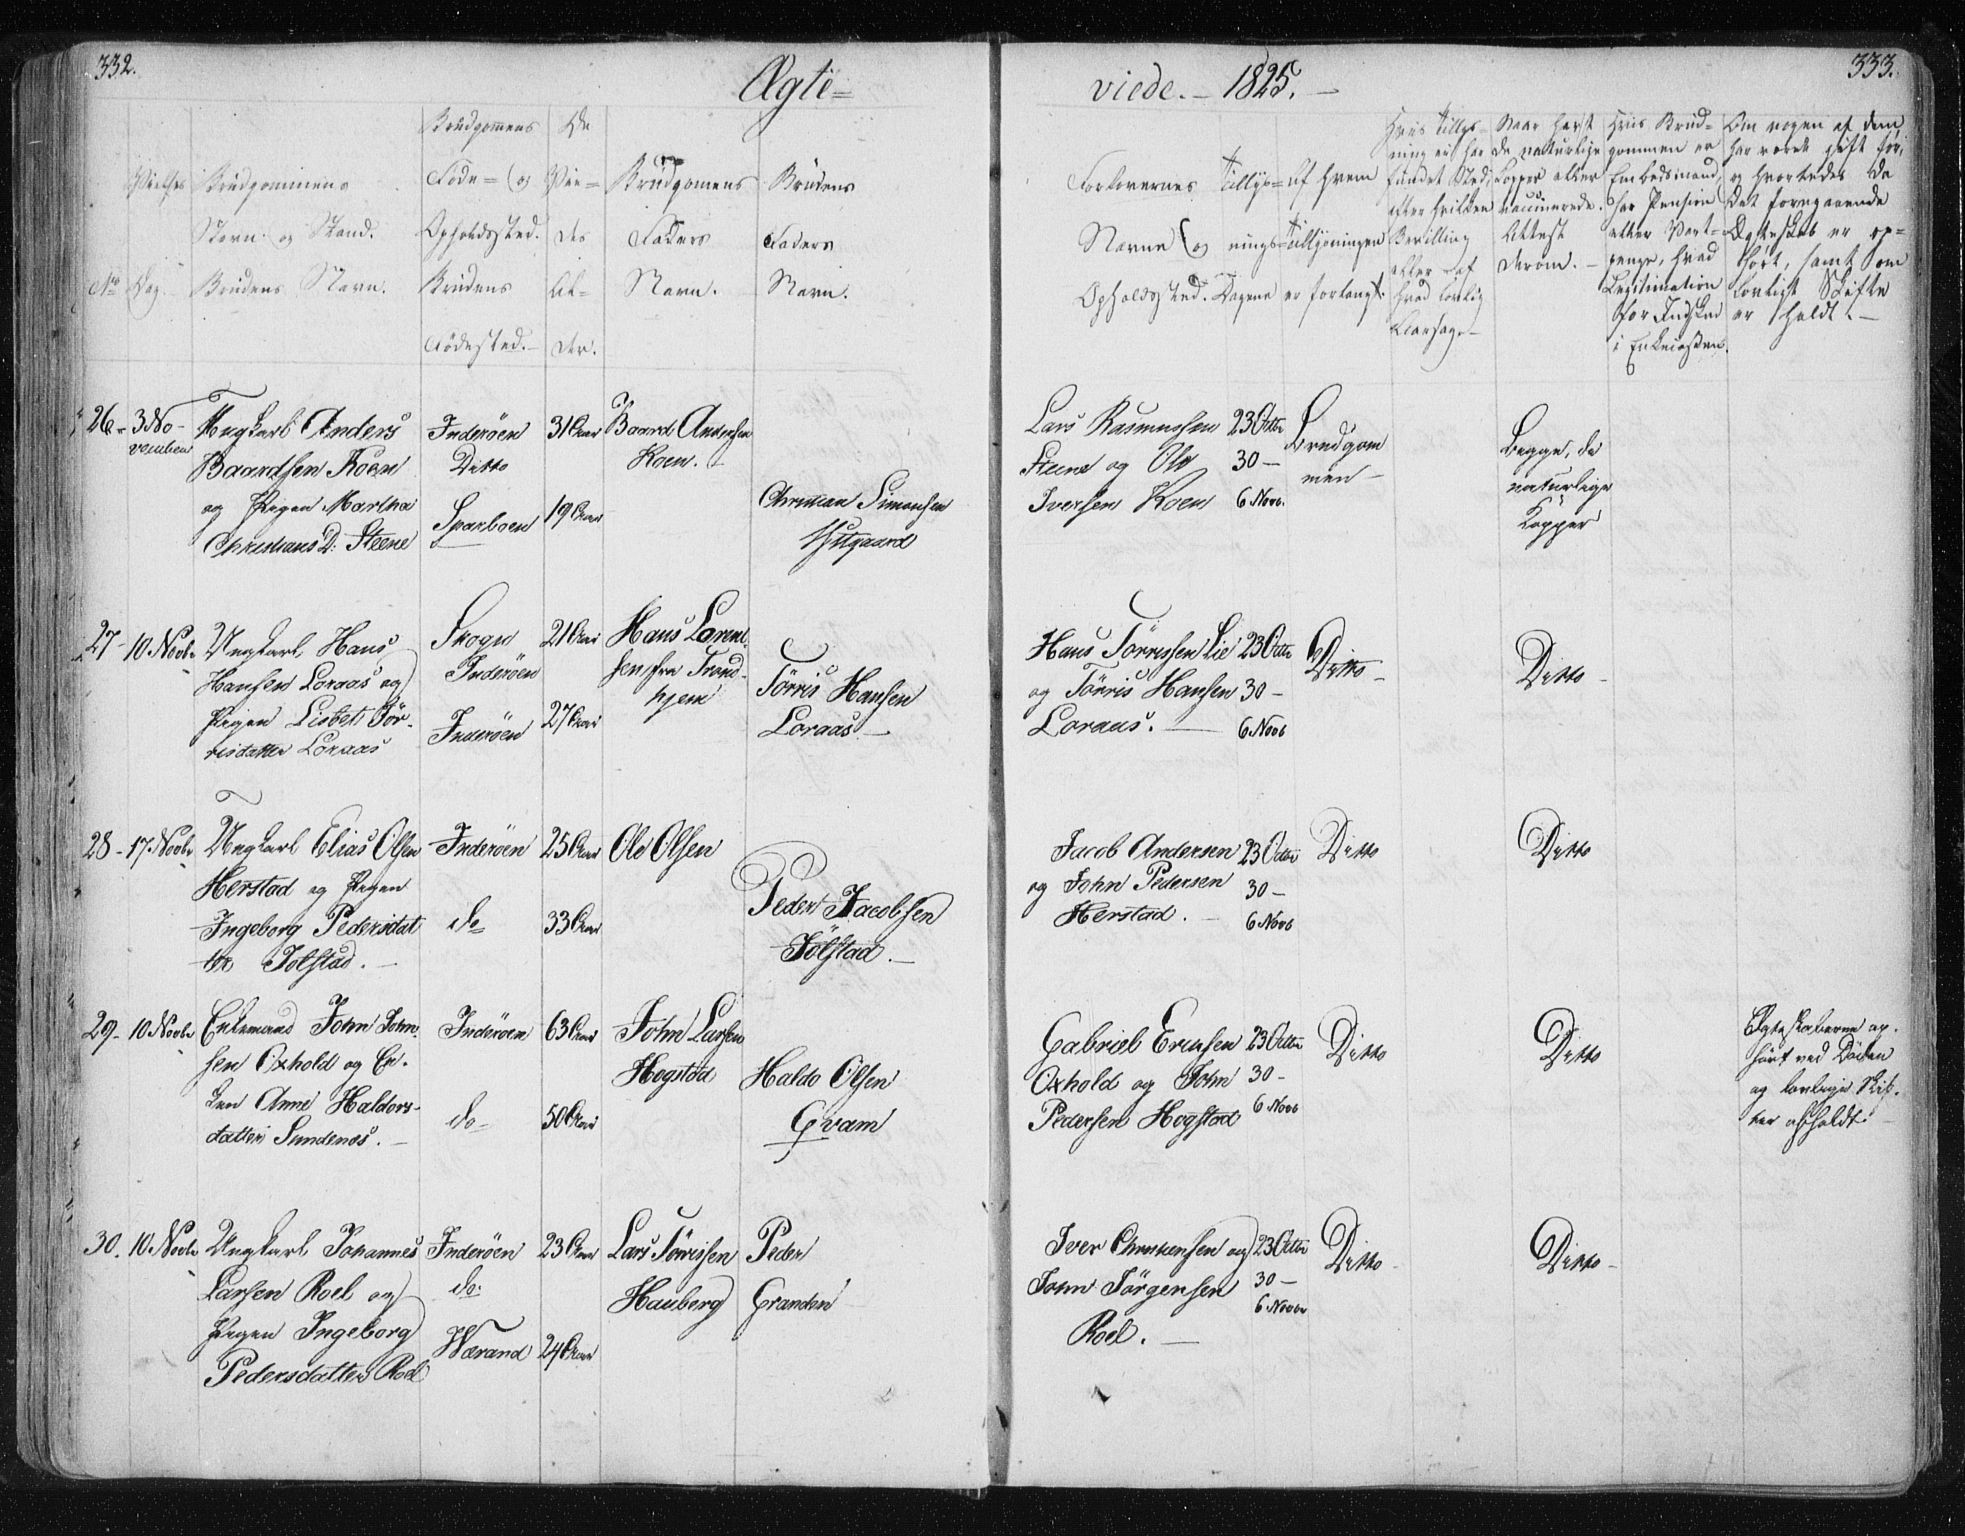 332.
Ægte=
viede. – 1825. –
333.
No
Vielses
Dag.
Brudgommens
Navn og Stand.
Brudens Navn.
Brudgomens
Føde= og
Opholdssted.
Brudens
Fødested. –
De
Vie=
des
Al=
der.
Brudgomens
Faders
Navn.
Brudens
Faders
Navn.
Forlovernes
Navne og
Opholdssted.
Tillys=
nings=
Dagene
af hvem
Tillysningen
er forlangt.
Hvis Tillys=
ning ei har
fundet Sted,
efter hvilken
Bevilling
eller af
hvad lovlig
Aarsag. –
Naar havt
de naturlige
Kopper eller
vaccinerede.
Attest
derom. –
Hvis Brud=
gommen er
Embedsmand,
har Pension
eller Vart=
penge, hvad
Legitimation
for Indskud
i Enkecassen.
Om nogen af dem
har været gift før,
og hvorledes da
det foregaaende
Ægteskab er op=
hørt, samt om
lovligt Skifte
er holdt. –
26 –
3 No-
vember
Ungkarl Anders
Baardsen Koen
og Pigen Martha
Christians D: Steene
Inderöen
Ditto
Sparboen
31 Aar
19 Aar
Baard Andersen
Koen. –
Christian Simonsen
Lars Rasmussen
Steene og Ole
Iversen Koen
23 Octbr
30 –
6 Novb.
Brudgom
men –
Begge, de
naturlige
Kopper
27 –
10 Novbr
Ungkarl Hans
Hansen Loraas og
Pigen Lisbet Tör-
risdatter Loraas
Skogn
Inderöen
Inderöen
21 Aar
27 Aar
Hans Lorent
sen fra Trond-
hjem
Törris Hansen
Loraas –
Hans Törrissen Lie
og Törris Hansen
Loraas. –
23 Octbr
30 –
6 Novb
Ditto –
Ditto –
28 –
17 Novbr
Ungkarl Elias Olsen
Herstad og Pigen
Ingeborg Pedersdat
ter Jölstad. –
Inderöen
do
25 Aar
33 Aar
Ole Olsen
Peder Jacobsen
Jölstad. –
Jacob Andersen
og John Pedersen
Herstad. –
23 Octbr
30 –
6 Novb
Ditto
Ditto
29 –
10 Novbr
Enkemand John John
sen Oxhold og En-
ken Anne Haldors-
datter Sundenes. –
Inderöen
do –
63 Aar
50 Aar
John Larsen
Hogstad
Haldo Olsen
Qvam
Gabriel Ericksen
Oxhold og John
Pedersen Hogstad
23 Octbr
30 –
6 Novb
Ditto
Ditto
Ægteskaberne op-
hørt ved Döden
og lovlige Skif-
ter afholdt. –
30.
10 Novbr
Ungkarl Johannes
Larsen Roel og
Pigen Ingeborg
Pedersdatter Roel
Inderöen
do.
Værand
23 Aar
24 Aar
Lars Törrissen
Hauberg
Peder
Granden
Iver Christensen og
John Jörgensen
Roel. –
23 Octbr
30 –
6 Novbr
Ditto –
Ditto –